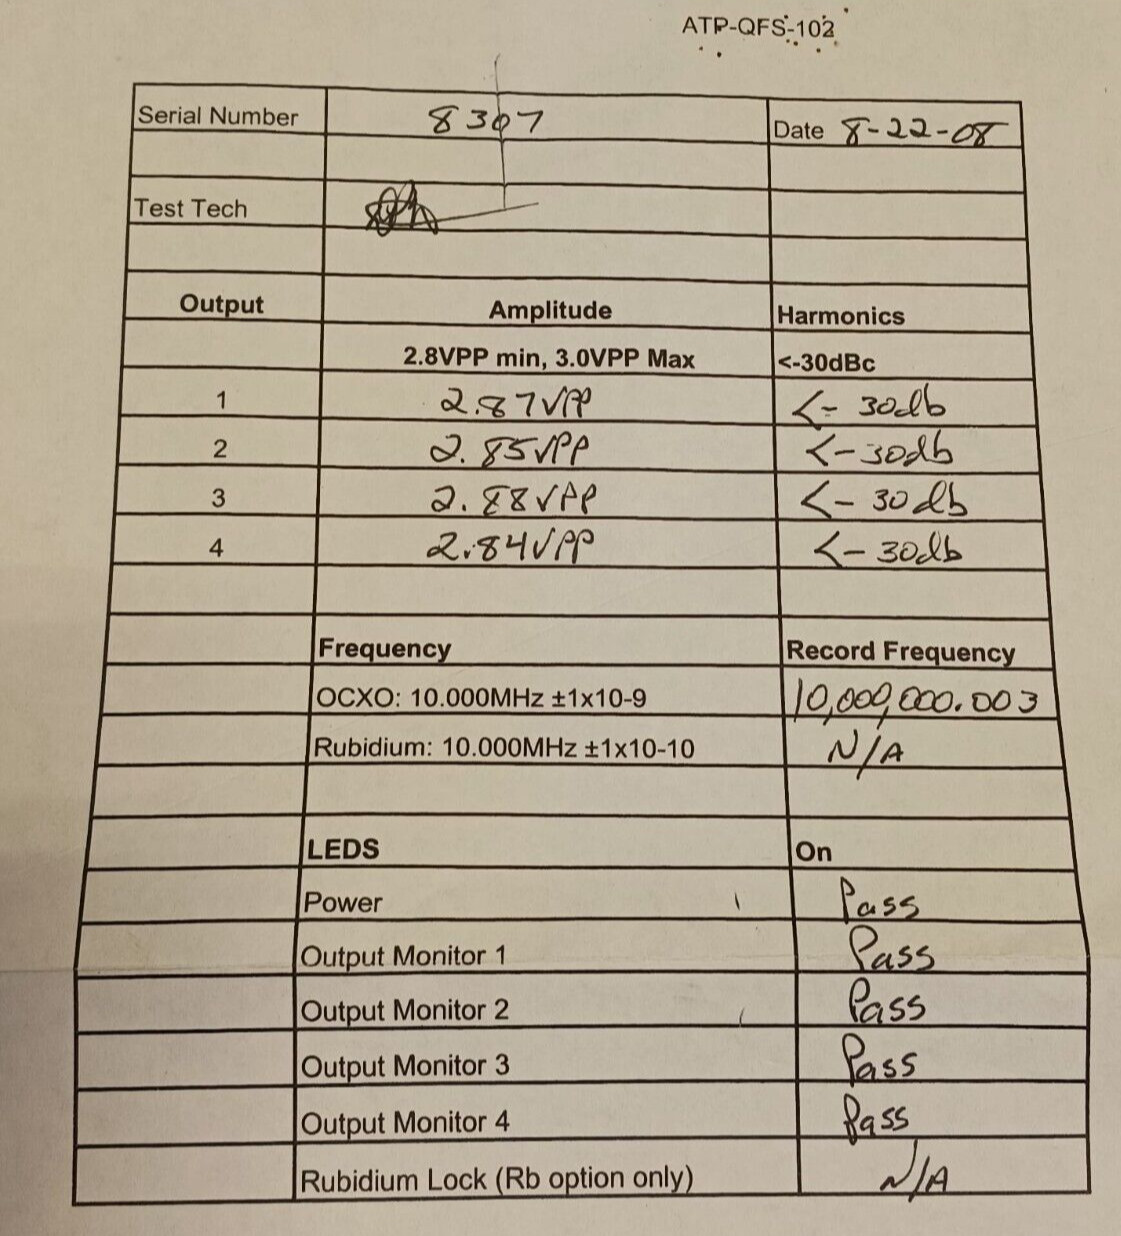 ATP-QFS-102
Serial Number 8307 Date 8-22-08
Test Tech
Output Amplitude Harmonics
2.8VPP min, 3.0VPP Max <-30dBc
1 2.87VPP <- 30db
2 2.85VPP <-30db
3 2.88VPP <- 30db
4 2.84VPP <-30db
Frequency Record Frequency
OCXO: 10.000MHz ±1x10-9 10,000,000.003
Rubidium: 10.000MHz ±1x10-10 N/A
LEDS On
Power Pass
Output Monitor 1 Pass
Output Monitor 2 Pass
Output Monitor 3 Pass
Output Monitor 4 Pass
Rubidium Lock (Rb option only) N/A